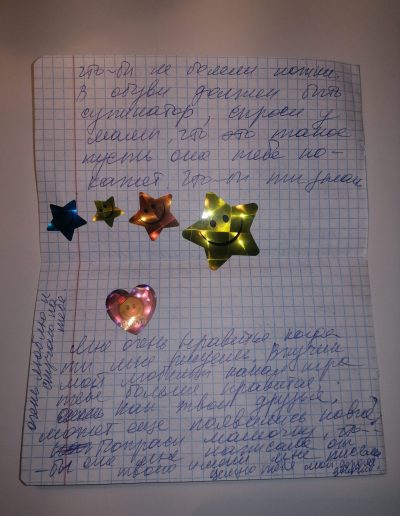 что-бы не болели ножки.
В обуви должен быть
супинатор, спроси у
мамы, что это такое
пусть она тебе по-
кажет что-бы ты знал
Мне очень нравится когда
ты мне рисуешь, внучек
мой любимый какая игра
тебе больше нравится,
как твои друзья,
может еще появились новые?
Попроси мамочку, что-
бы она мне написала от
твоего имени мне письмо
целую тебя мой
очень люблю и
скучаю по
тебе